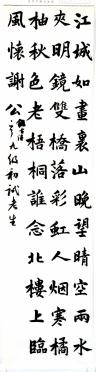 江城如畫裏山晚望晴空雨水
夾明鏡雙橋落彩虹人烟寒橘
柚秋色老梧桐誰念北樓上臨
風懷謝公
九級初試老生